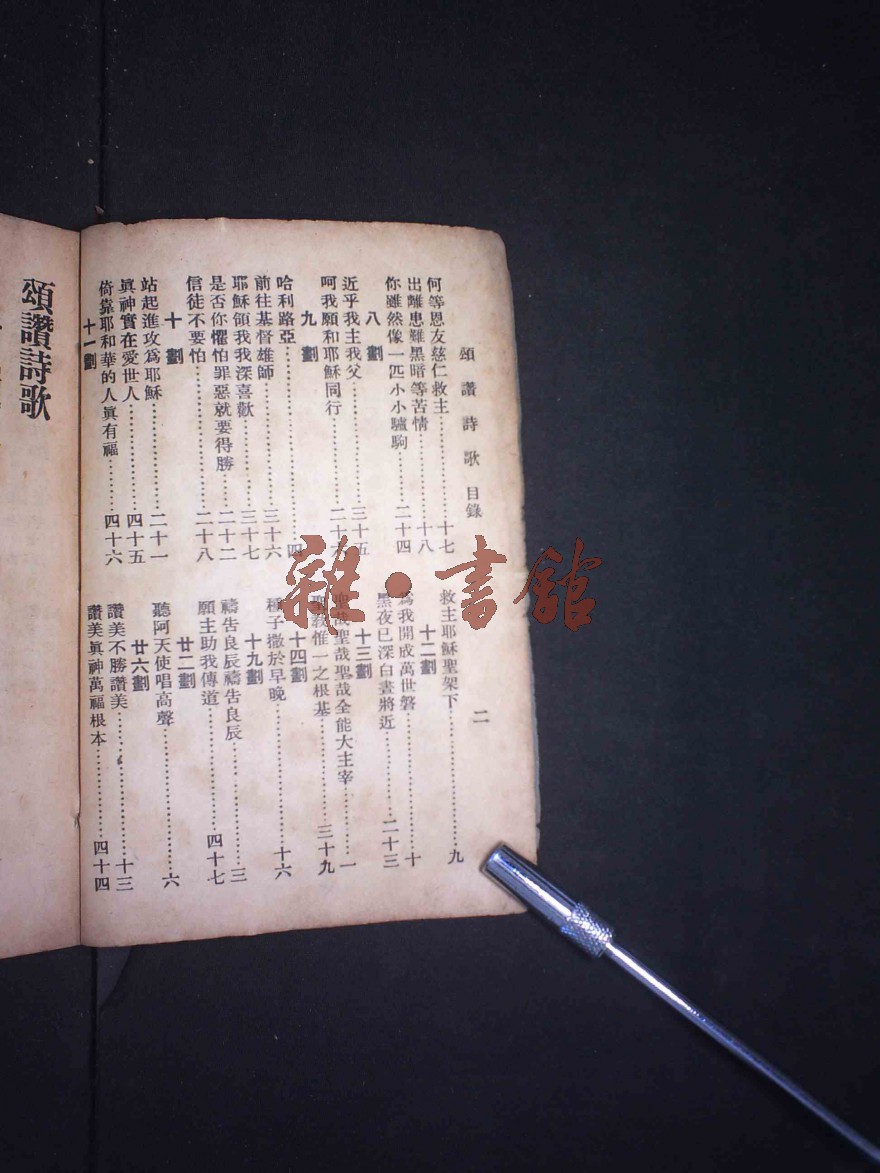 頌讚詩歌 目錄
二
何等恩友慈仁救主……十七
出離患難黑暗等苦情……十八
你雖然像一匹小小驢駒……二十四
八劃
近乎我主我父……三十五
呵我願和耶穌同行……二十六
九劃
哈利路亞……四
前往基督雄師……三十六
耶穌領我我深喜歡……三十七
是否你懼怕罪惡就要得勝……二十二
信徒不要怕……二十八
十劃
站起進攻爲耶穌……二十一
眞神實在愛世人……四十五
倚靠耶和華的人眞有福……四十六
十一劃
救主耶穌聖架下……九
十二劃
爲我開成萬世磐……十
黑夜已深白晝將近……二十三
十三劃
聖哉聖哉聖哉全能大主宰……一
聖敎惟一之根基……三十九
十四劃
種子撒於早晚……十六
十九劃
禱告良辰禱告良辰……三
願主助我傳道……四十七
廿二劃
聽阿天使唱高聲……六
廿六劃
讚美不勝讚美……十三
讚美眞神萬福根本……四十四
頌讚詩歌
雜·書館